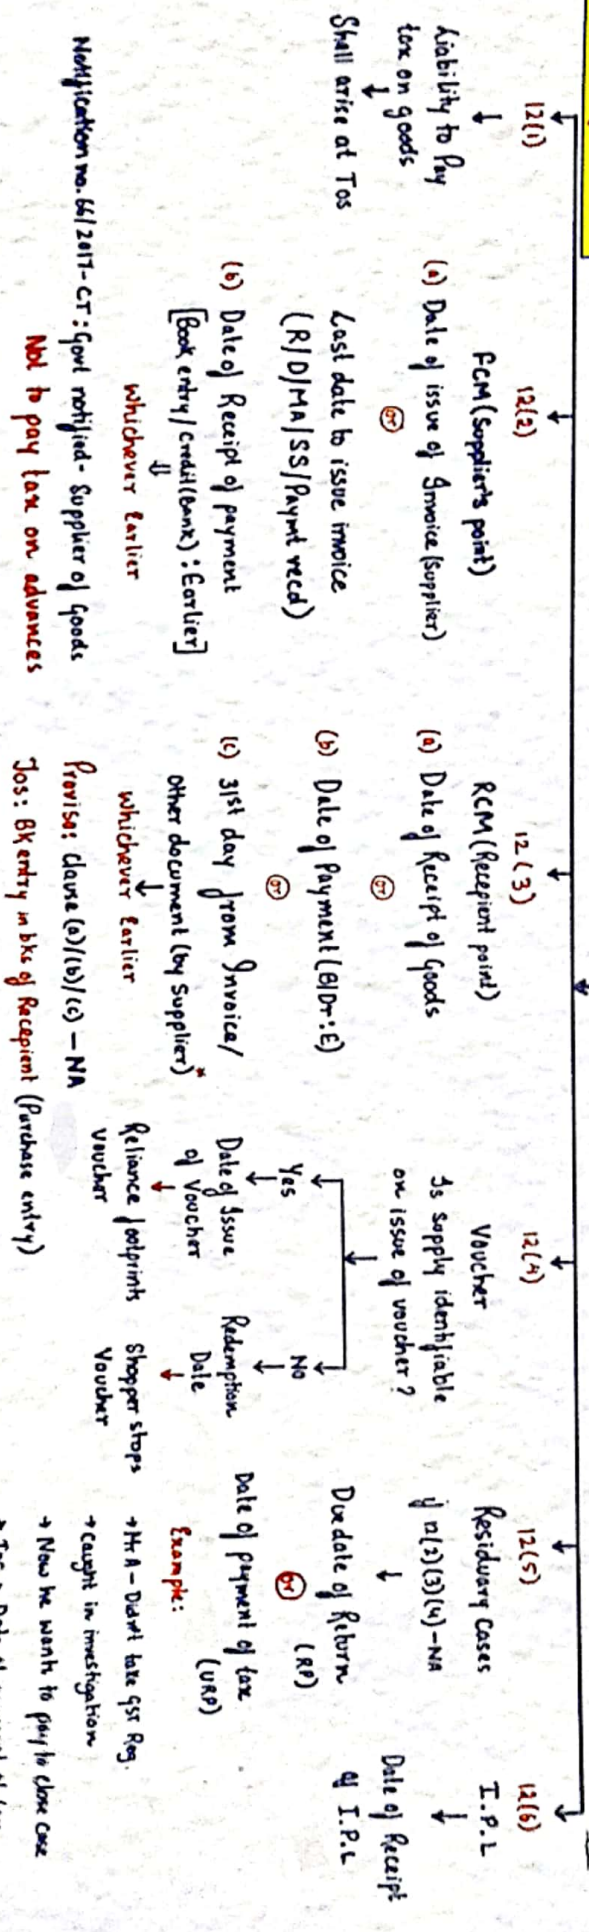 12(1)
Liability to Pay
tax on goods
Shall arise at Tos
12(2)
FCM (Supplier's point)
(a) Date of issue of Invoice (Supplier)
(or)
Last date to issue invoice
(R/D/MA/SS/Paymt recd)
(b) Date of Receipt of payment
[Book entry/Credit(Bank) : Earlier]
Whichever Earlier
Notification no. 66/2017-CT : Govt notified - Supplier of Goods
Not to pay tax on advances
12(3)
RCM (Recepient point)
(a) Date of Receipt of Goods
(or)
(b) Date of Payment (B/Dr : E)
(or)
(c) 31st day from Invoice/
Other document (by Supplier)*
Whichever Earlier
Proviso: Clause (a)/(b)/(c) - NA
Tos: BK entry in bks of Recepient (Purchase entry)
12(4)
Voucher
Is supply identifiable
on issue of voucher?
Yes
Date of Issue
of Voucher
Reliance footprints
Voucher
No
Redemption
Date
Shopper stops
Voucher
12(5)
Residuary Cases
if 12(2)(3)(4) - NA
Due date of Return
(RP)
(or)
Date of payment of tax
(URP)
Example:
→ Mr A - Didn't take GST Reg.
→ Caught in investigation
→ Now he wants to pay to close case
12(6)
I.P.L
Date of Receipt
of I.P.L